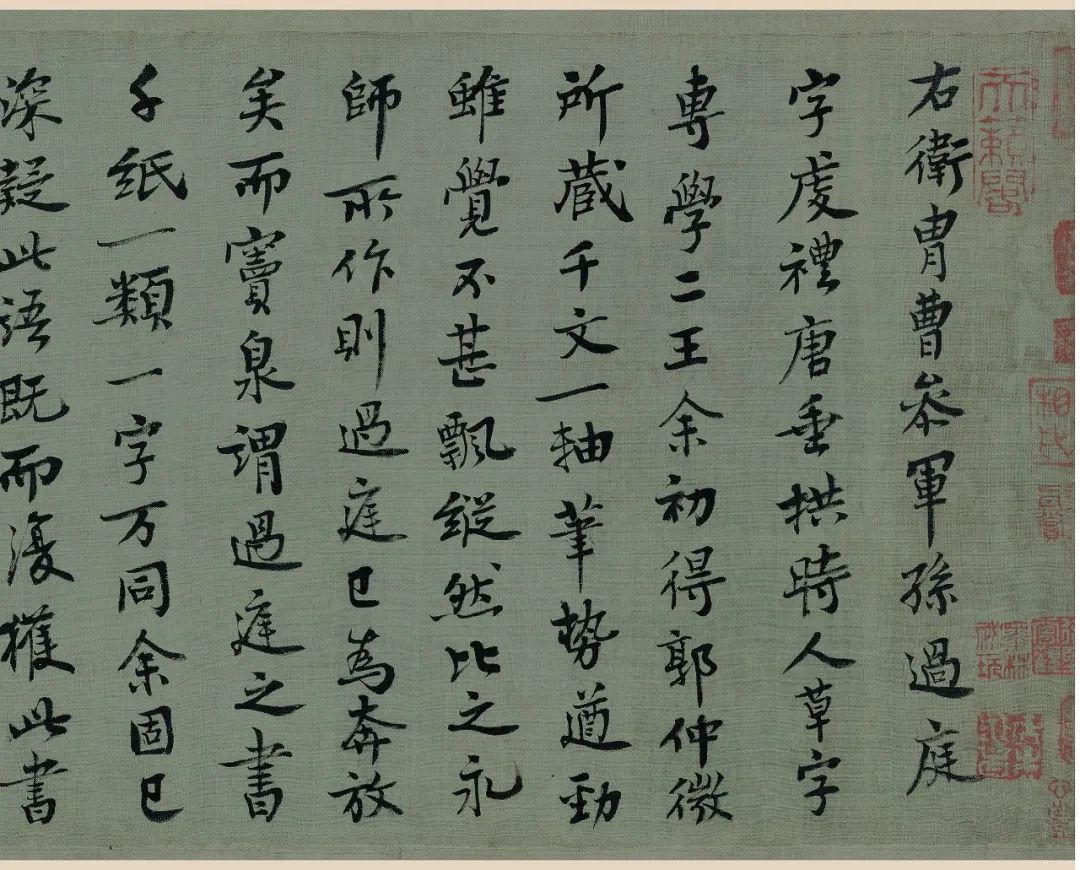 右衛冑曹叅軍孫過庭
字虔禮唐垂拱時人草字
專學二王余初得郭仲微
所蔵千文一軸筆勢遒勁
雖覺不甚飄縱然比之永
師所作則過庭已為奔放
矣而竇泉謂過庭之書
千紙一類一字万同余固已
深疑此語既而復獲此書